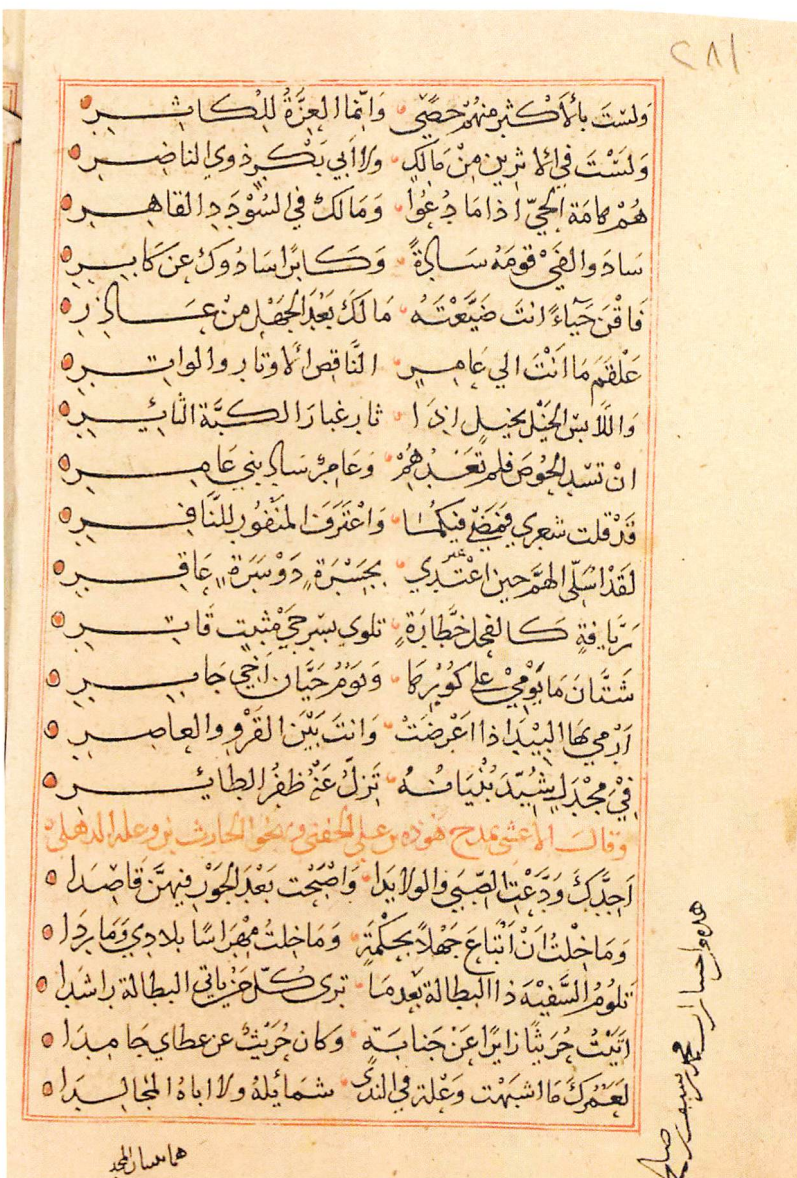 ٢٨١
وَلسْتَ بالأكْثرِ منهُمْ حصًى وَانّما العِزَّةُ لِلْكاثِرِ
وَلسْتَ في الاثرين مِنْ مَالكٍ ولا ابي بَكْرٍ ذوي الناضِرِ
هُمْ هامَة الحيّ اذا ما دُعُوا وَمَالك في السُّوْدَدِ القاهِرِ
سادَ والفَيْ قومَهُ سادةً وَكابرًا سادُوكَ عن كابِرِ
فَاقْنَ حَيَآءً انتَ ضَيَّعْتَهُ مَالكَ بَعْدَ الجَهْلِ مِنْ عَاذِرِ
عَلْقَمَ مَا انْتَ الي عَامِرٍ النَّاقِص الاوتارِ والواتِرِ
وَاللَّابسِ الخَيْل بخيلٍ اذَا ثار غبارُ الكبَّة الثائِرِ
انْ تسْد الحُوصَ فلم تَعْدُهُمْ وَعَامِرٌ سادَ بني عَامِرِ
قَدْ قلت شعري فمَضَى فيكُمَا وَاعْتَرَفَ المَنْفُورُ للنَّافِرِ
لَقَدْ اسَلّي الهَمَّ حين اعْتَدِي بجَسْرَةٍ دَوْسَرَةٍ عَاقِرِ
زيَّافةٍ كالفحلِ خَطَّارَةٍ تلوي بشرخَيْ مَيْت قَاتِرِ
شَتَّانَ مَا يَوْمِيْ علي كُوْرِهَا وَيَوْمُ حَيَّان اخي جَابِرِ
اَرْمي بها البَيْدَا اذا اعْرضَتْ وَانتَ بَيْنَ القَرْوِ والعاصِرِ
فِيْ مِجْدَلٍ شُيّدَ بُنْيَانُهُ تَزِلُّ عَنْهُ ظفُرُ الطائِرِ
وقال الاعشى يمدح هوذه بن علي الحنفي ويهجو الحارث بن وعله الذهلي
اَجِدَّكَ وَدَّعْتَ الصِّبَى والولايدا وَاصْبَحْت بَعْدَ الجَوْرِ فيهنَّ قَاصِدا
وَمَا خِلْتُ اَنْ اَبْتَاعَ جَهْلاً بحِكْمَةٍ وَمَا خِلتُ مِهْرَاسًا بلادي وَمَارِدَا
تلُومُ السَّفيْهَ ذا البَطالة بَعْدمَا تري كُلّ مَنْ ياتي البطالة راشدَا
اتَيْتُ حُرَيثًا زايرًا عَنْ جنابَةٍ وَكان حُرَيثٌ عن عطاي جَامِدَا
لَعَمْرُكَ مَا اشبَهْت وَعْلة في الندَى شمَائِلهُ ولا اباهُ المُجَالِدَا